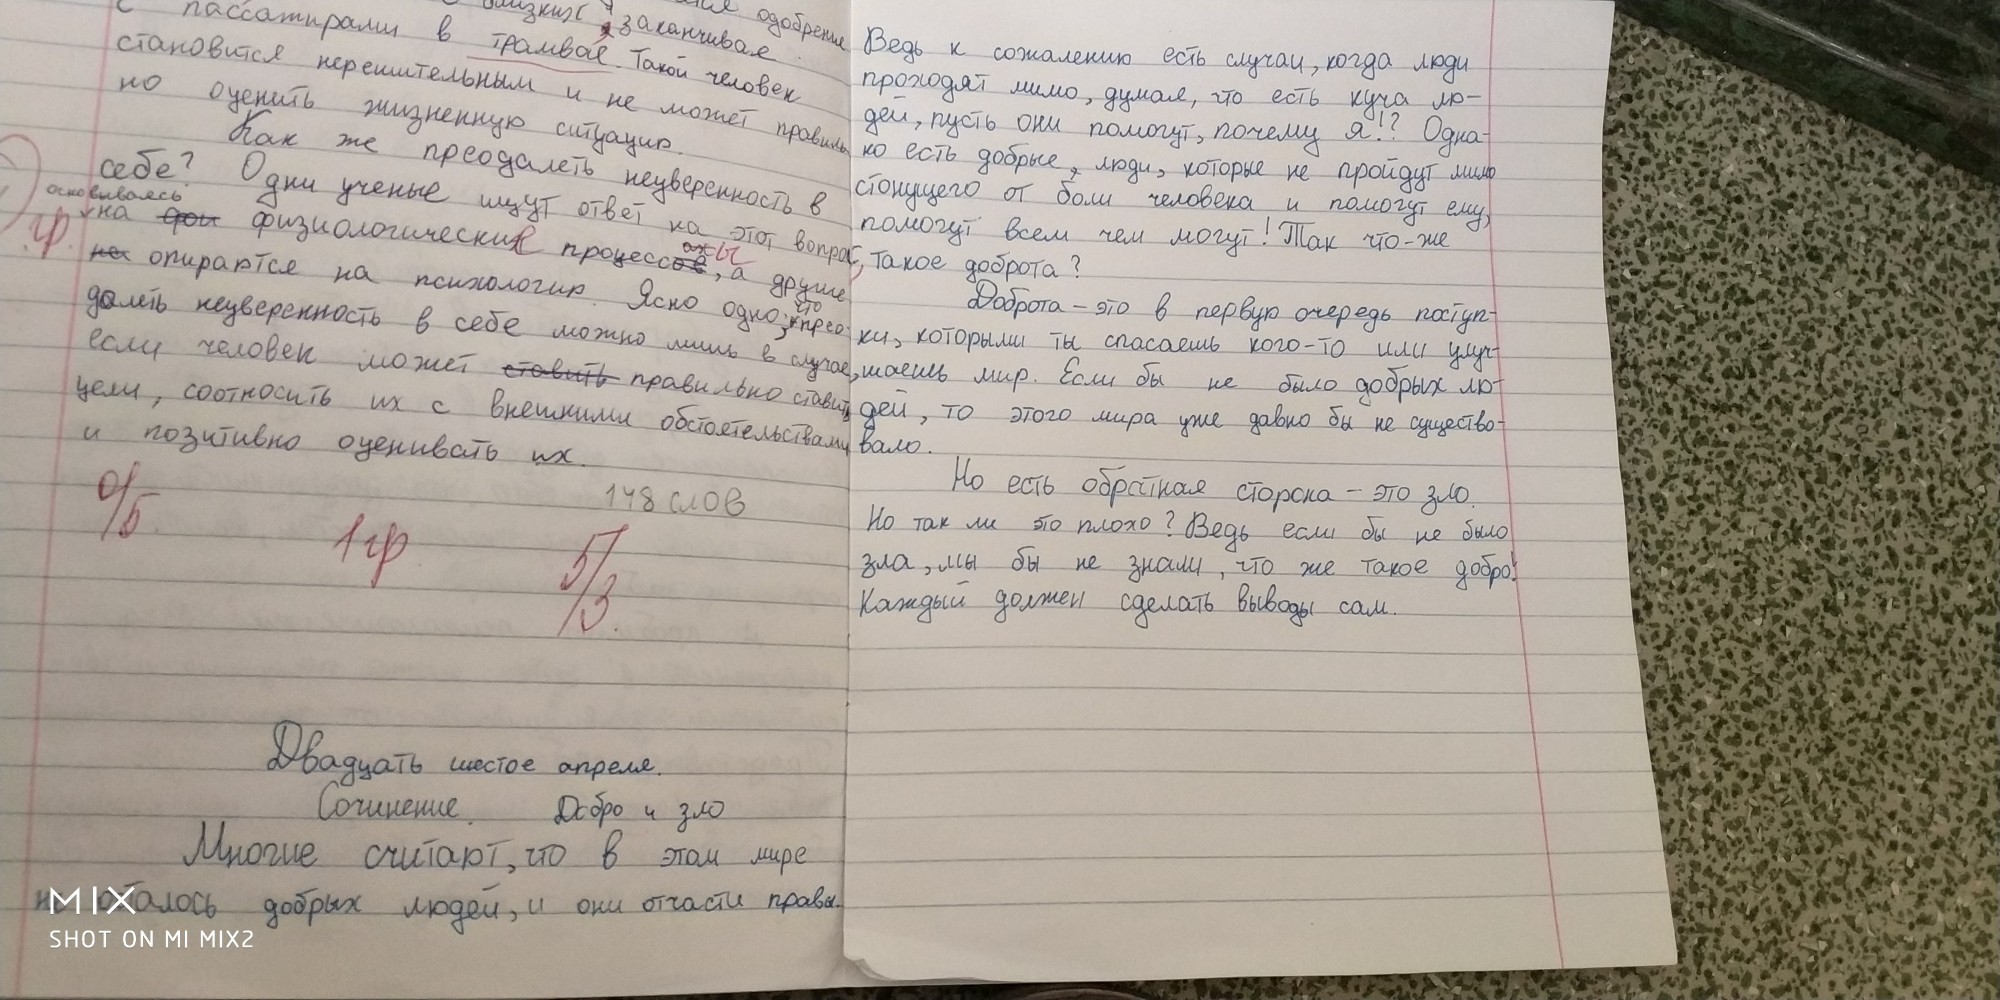 близких, заканчивая одобрение
с пассажирами в трамвае. Такой человек
становится нерешительным и не может правиль
но оценить жизненную ситуацию.
Как же преодалеть неуверенность в
себе? Одни ученые ищут ответ на этот вопрос,
основываясь
на физиологический процессах, а другие
на опираются на психологию. Ясно одно: что прео-
далеть неуверенность в себе можно лишь в случае,
если человек может ставить правильно ставить
цели, соотносить их с внешними обстоятельствами
и позитивно оценивать их.
гр.
148 слов
0/5
1 гр
5/3.
Двадцать шестое апреля.
Сочинение. Добро и зло
Многие считают, что в этом мире
не осталось добрых людей, и они отчасти правы.
Ведь к сожалению есть случаи, когда люди
проходят мимо, думая, что есть куча лю-
дей, пусть они помогут, почему я!? Одна-
ко есть добрые, люди, которые не пройдут мимо
стонущего от боли человека и помогут ему,
помогут всем чем могут! Так что-же
такое доброта?
Доброта – это в первую очередь поступ-
ки, которыми ты спасаешь кого-то или улуч-
шаешь мир. Если бы не было добрых лю-
дей, то этого мира уже давно бы не существо-
вало.
Но есть обратная сторона – это зло.
Но так ли это плохо? Ведь если бы не было
зла, мы бы не знали, что же такое добро!
Каждый должен сделать выводы сам.
MIX
SHOT ON MI MIX2